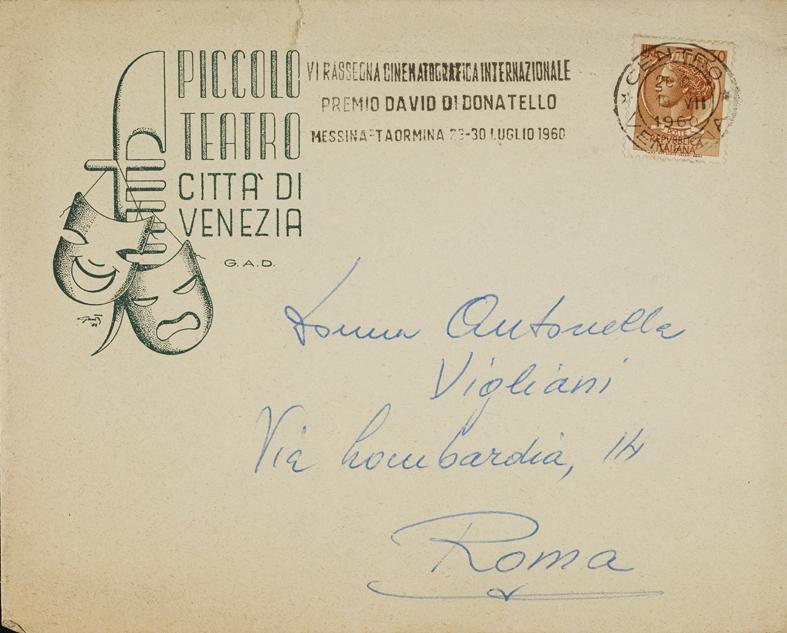 PICCOLO
TEATRO
CITTA' DI
VENEZIA
G.A.D.
VI RASSEGNA CINEMATOGRAFICA INTERNAZIONALE
PREMIO DAVID DI DONATELLO
MESSINA-TAORMINA 23-30 LUGLIO 1960
CENTRO
VII
1960
VENEZIA
POSTE
REPUBBLICA
ITALIANA
Donna Antonella
Vigliani
Via Lombardia, 14
Roma